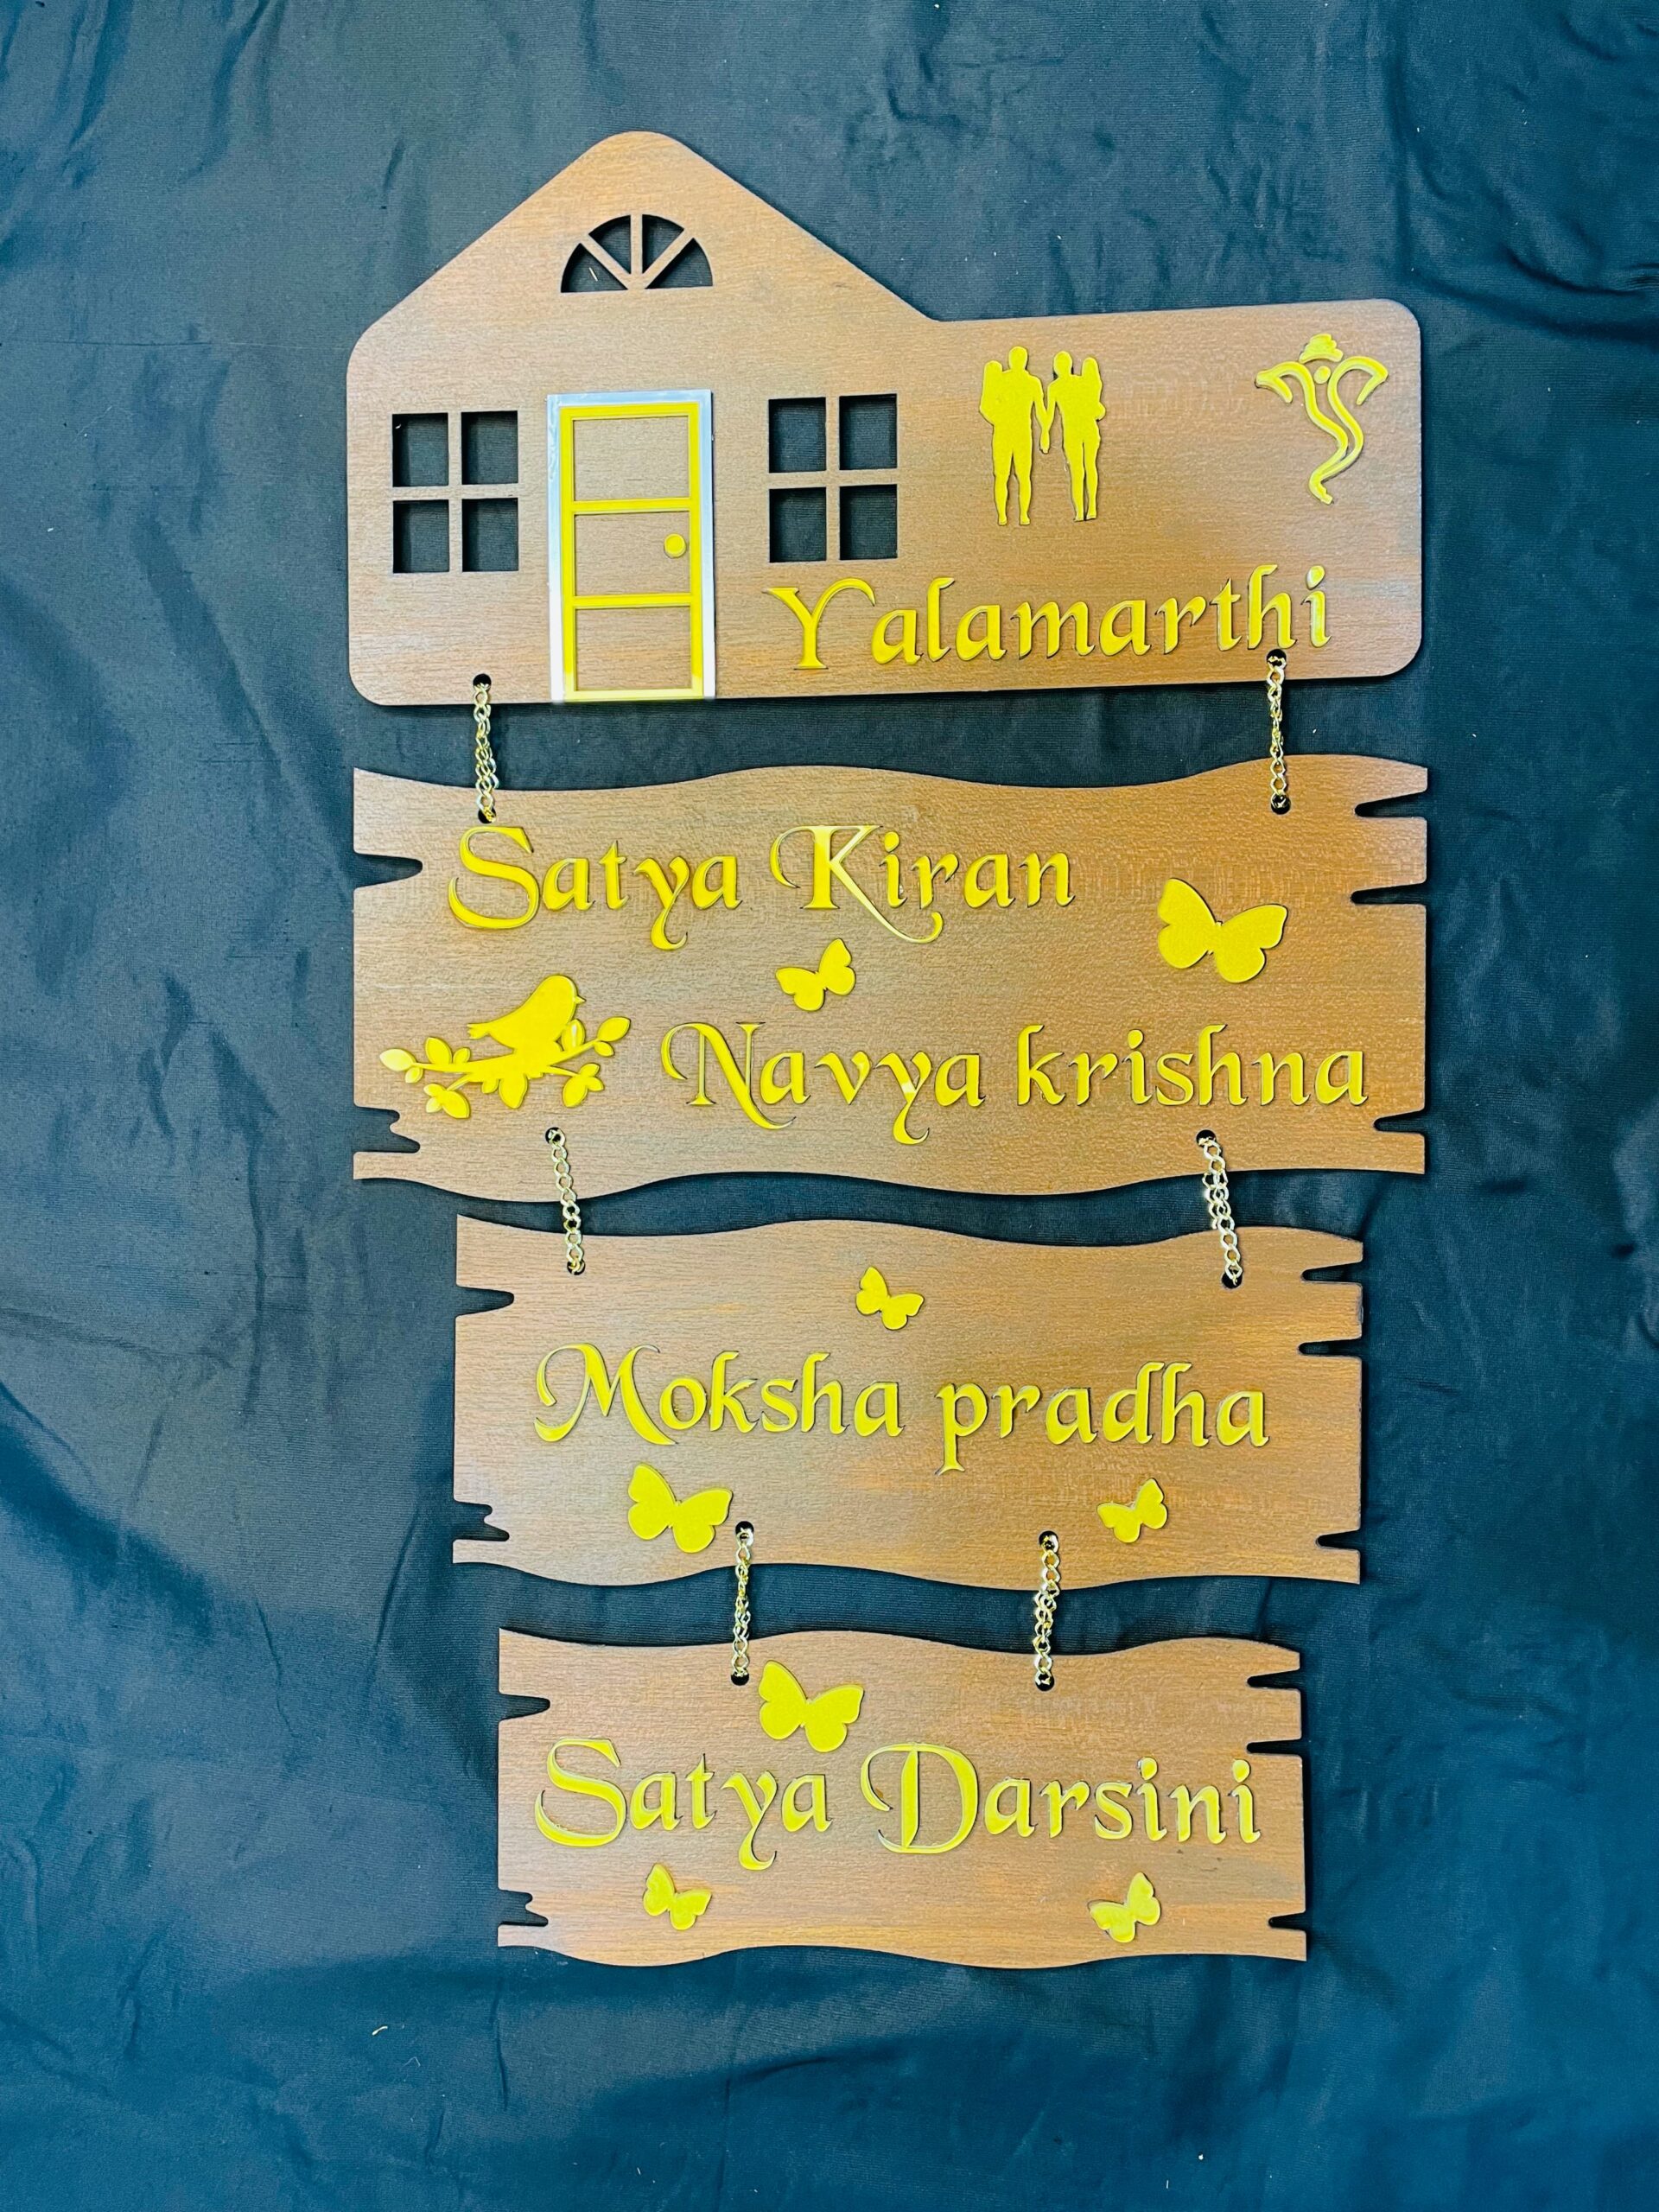 Yalamarthi
Satya Kiran
Navya krishna
Moksha pradha
Satya Darsini